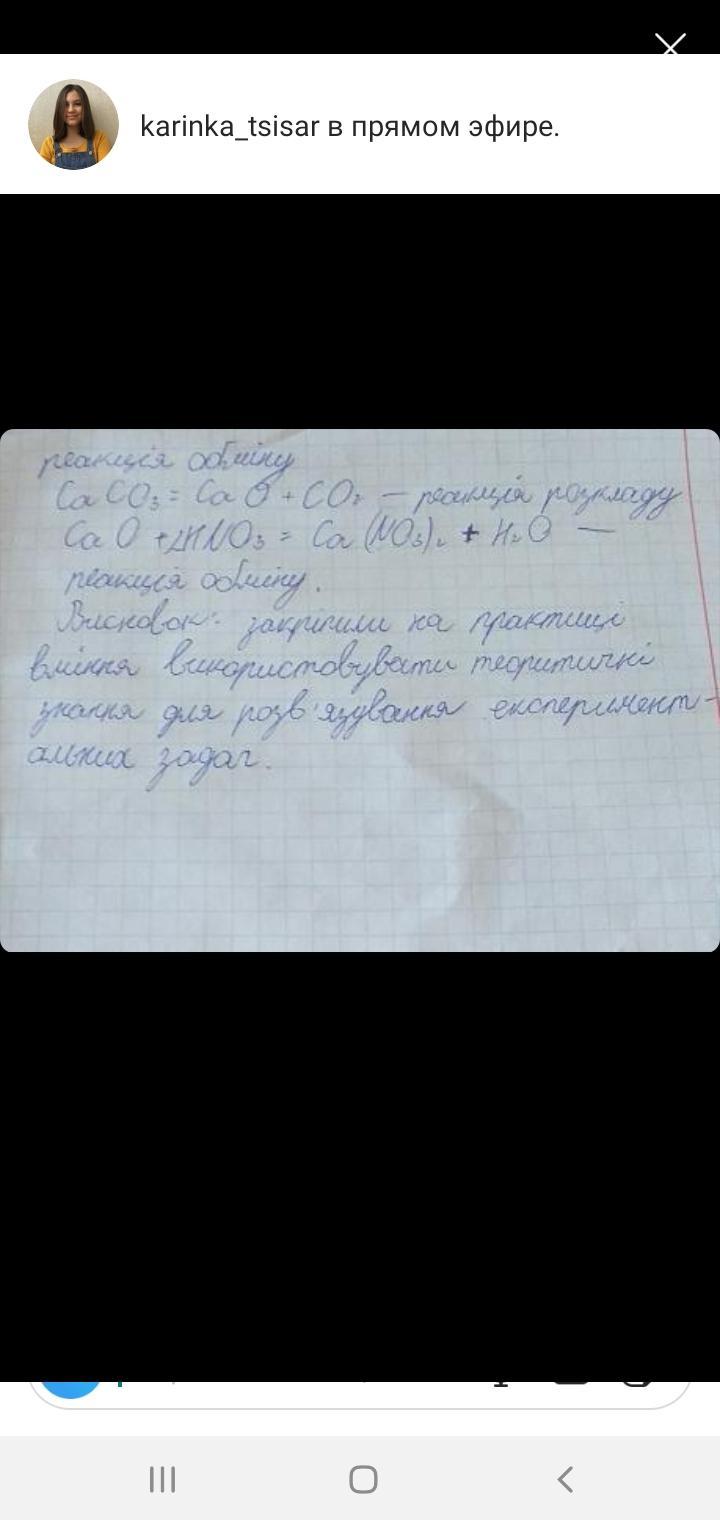 karinka_tsisar в прямом эфире.
реакція обміну
CaCO₃ = CaO + CO₂ — реакція розкладу
CaO + 2HNO₃ = Ca(NO₃)₂ + H₂O —
реакція обміну.
Висновок: закріпили на практиці
вміння використовувати теоритичні
знання для розв'язування експеримент-
альних задач.